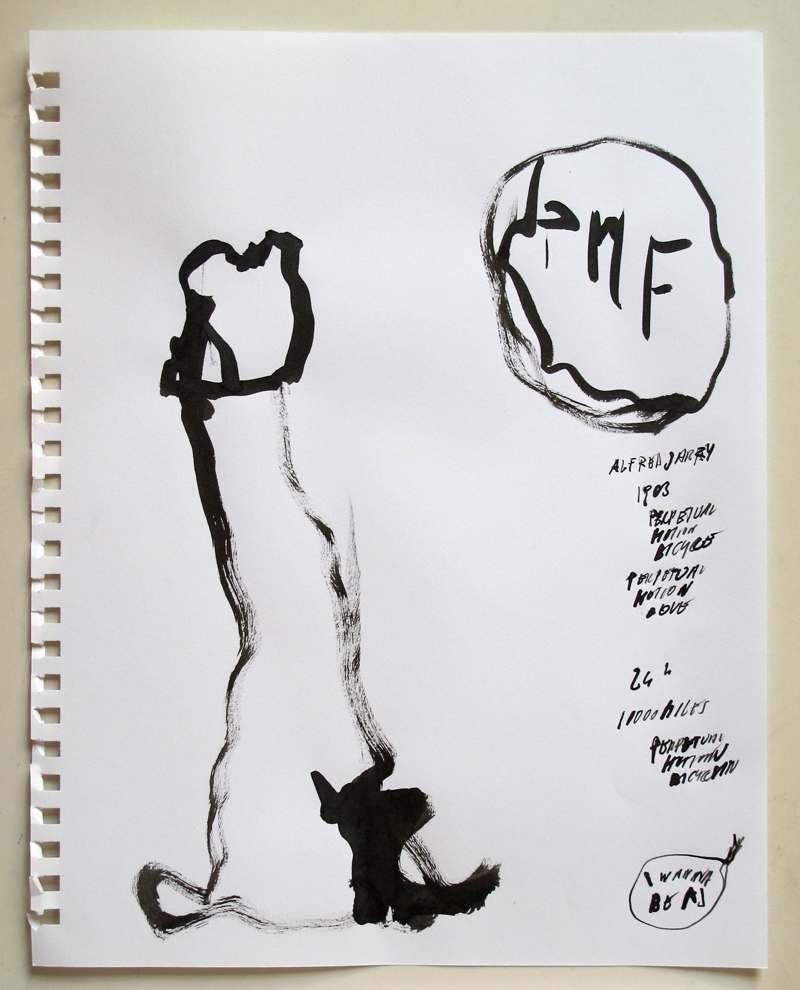 PMF
ALFRED JARRY
1903
PERPETUAL
MOTION
BICYCLE
PERPETUAL
MOTION
LOVE
24 h
11000 MILES
PERPETUAL
MOTION
I WANNA
BE A